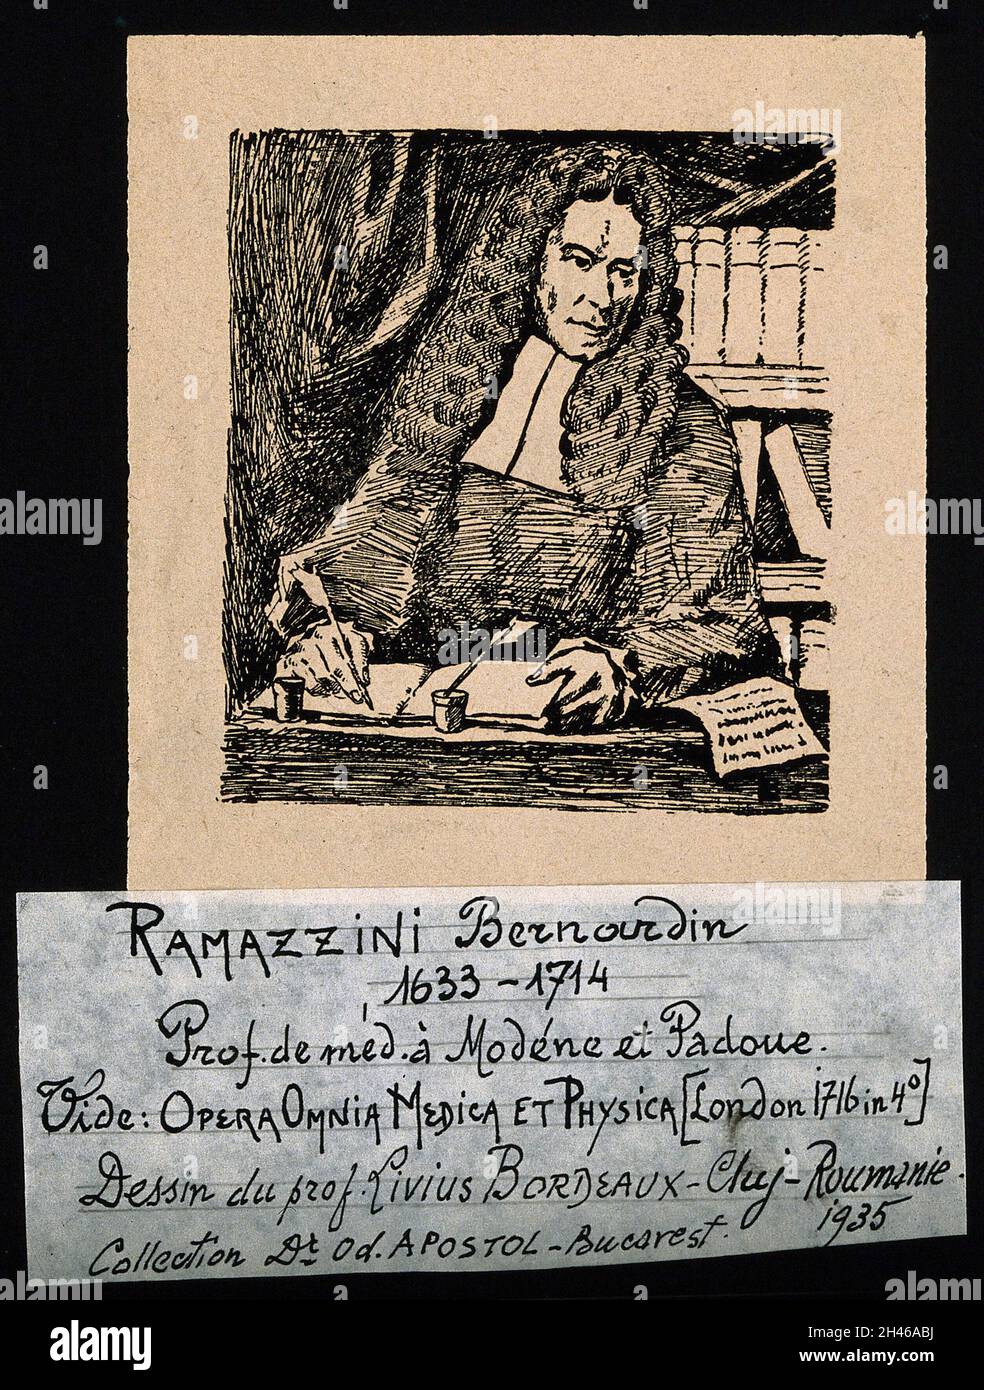 RAMAZZINI Bernardin
1633-1714
Prof. de méd. à Modéne et Padoue.
Vide: OPERA OMNIA MEDICA ET PHYSICA [London 1716 in 4º]
Dessin du prof. Livius BORDEAUX - Cluj - Roumanie.
1935
Collection Dr. Od. APOSTOL - Bucarest.
alamy
Image ID: 2H46ABJ
www.alamy.com